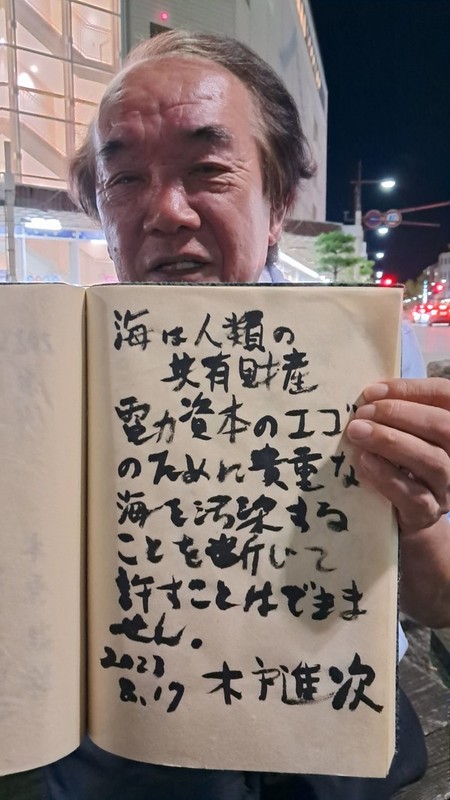 海は人類の
共有財産
電力資本のエゴ
のために貴重な
海を汚染する
ことを断じて
許すことはできま
せん。
2023
8.17 木戸進次